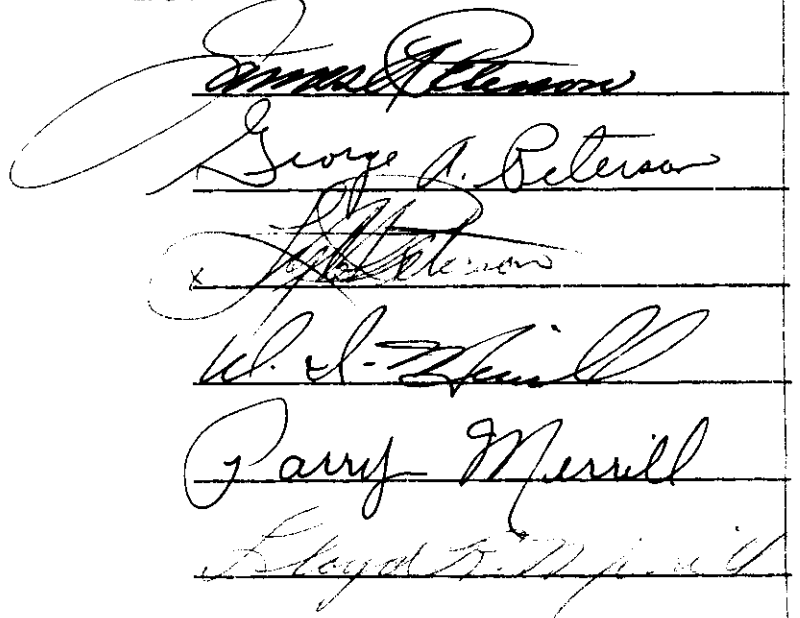 James Peterson
George A. Peterson
x Peterson
W. Merrill
Parry Merrill
Lloyd R. Merrill